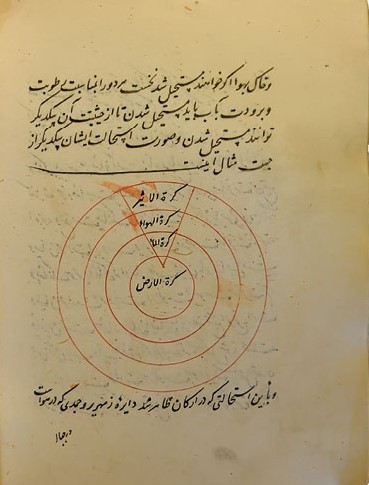 و خاک بهوا اگر خواهند مستحیل شد نخست مر دو را بنابت رطوبت
و برودت بآب باید مستحیل شدن تا از حیثیت آن بیکدیگر
توانند مستحیل شدن و صورت استحالت ایشان بیکدیگر از
جهت مثال اینست
کرة الاثیر
کرة الهواء
کرة الماء
کرة الارض
و باین استحالتی که در ارکان ظاهر شد دایره زمهریر و حدی که در هواست